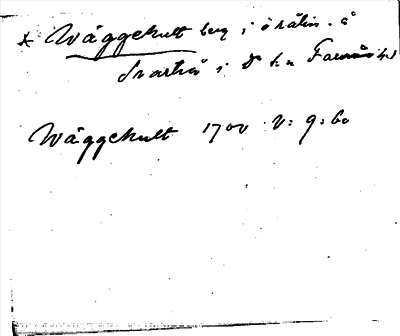 * Wäggehult berg i örätin. å
Svartrå i Ds hn Faurås hd
Wäggehult 1700 V: 9: 60